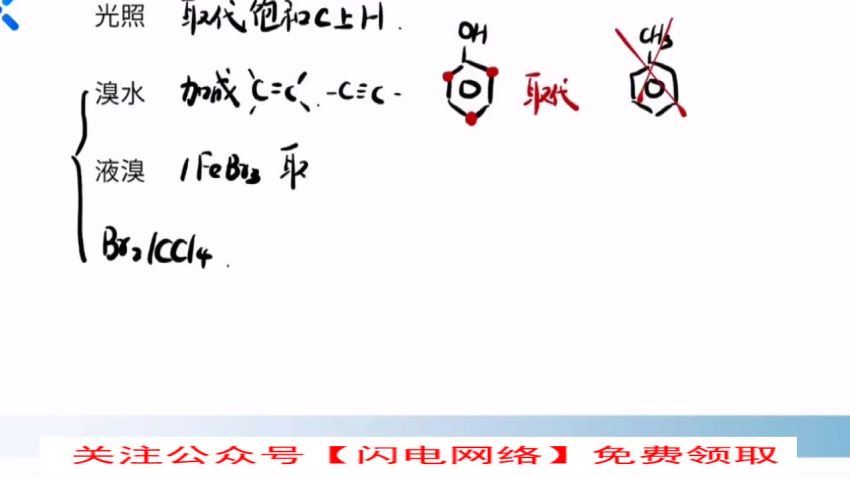 光照 取代饱和C上H.
OH CH₃
溴水 加成 C=C. -C≡C- 取代
液溴 /FeBr₃ 取
Br₂/CCl₄.
关注公众号【闪电网络】免费领取